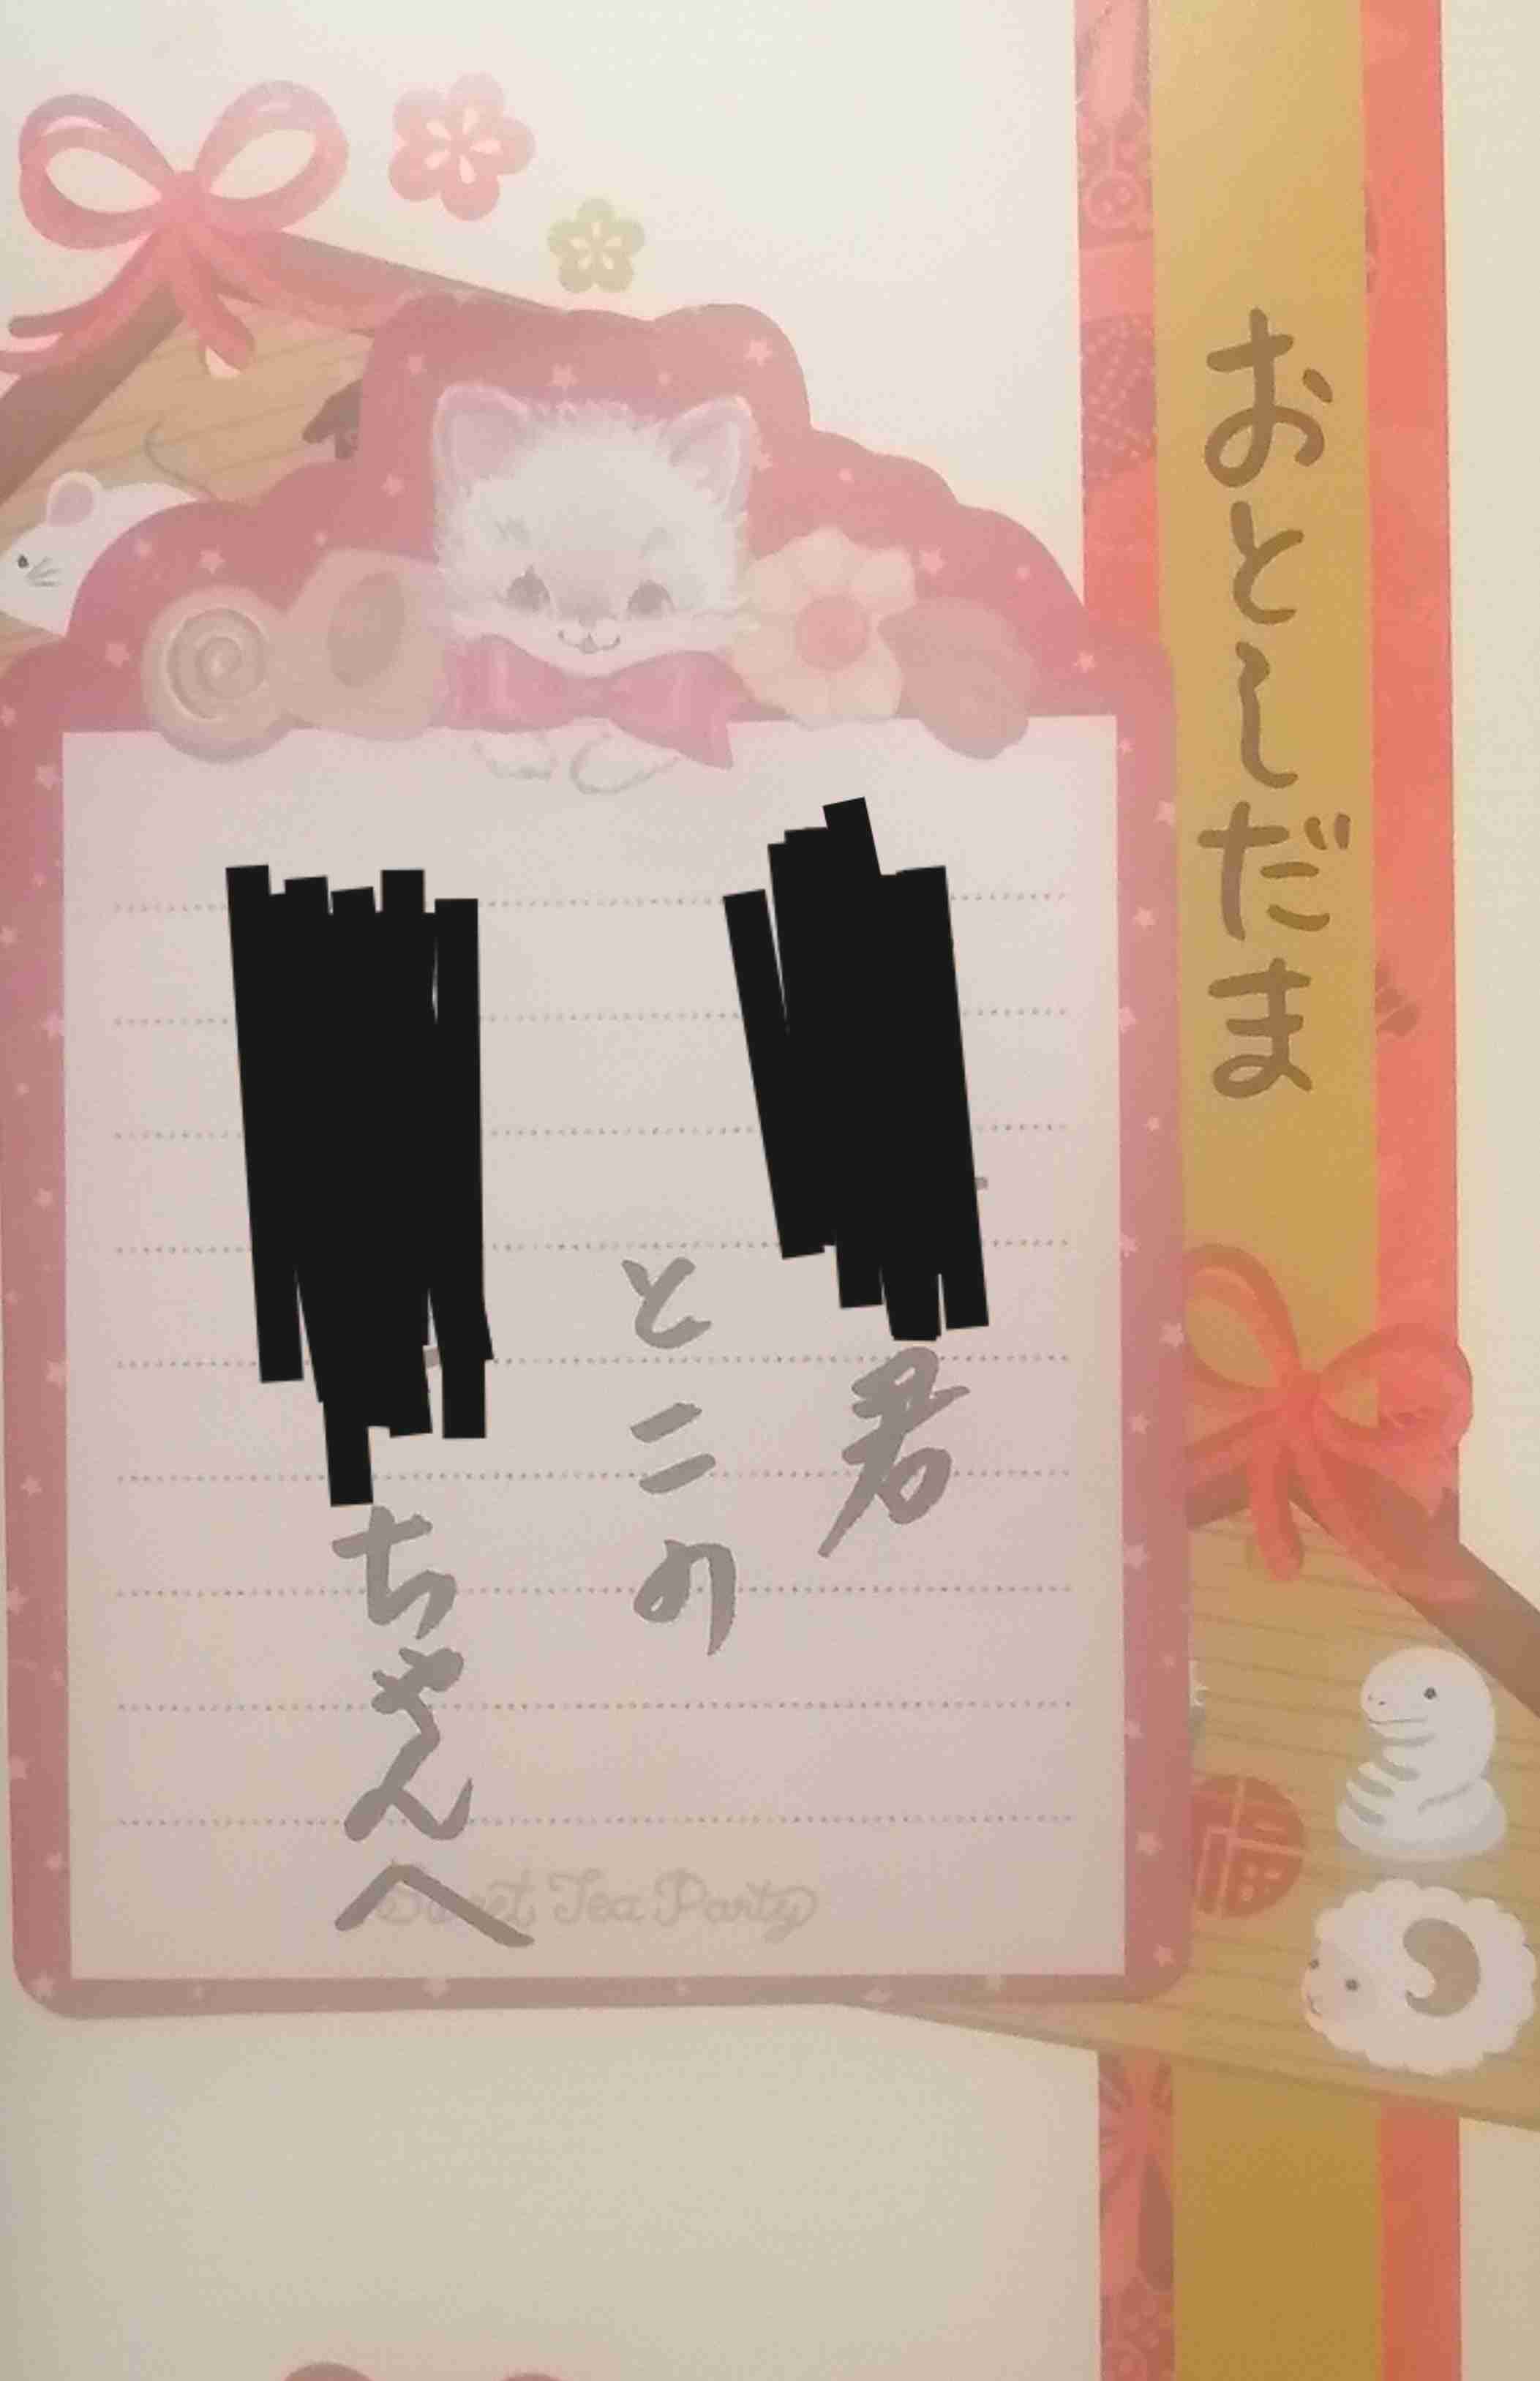 おとしだま
君
とこの
ちゃんへ
Sweet Tea Party
福